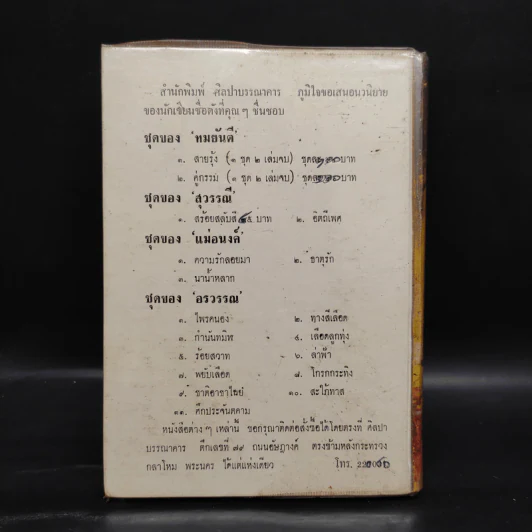 สำนักพิมพ์ ศิลปาบรรณาคาร ภูมิใจขอเสนอนวนิยาย
ของนักเขียนชื่อดังที่คุณ ๆ ชื่นชอบ
ชุดของ 'ทมยันตี'
๑. สายรุ้ง (๑ ชุด ๒ เล่มจบ) ชุดละ บาท
๒. คู่กรรม (๑ ชุด ๒ เล่มจบ) ชุดละ บาท
ชุดของ 'สุวรรณี'
๑. สร้อยสลับสี บาท ๒. อิตถีเพศ
ชุดของ 'แม่อนงค์'
๑. ความรักลอยมา ๒. ธาตุรัก
๓. นาน้ำหลาก
ชุดของ 'อรวรรณ'
๑. ไพรคนอง ๒. ทางสีเลือด
๓. กำนันทมิฬ ๔. เลือดลูกทุ่ง
๕. ร้อยสวาท ๖. ล่าฟ้า
๗. พยับเลือด ๘. ไกรกกระทิง
๙. ชาติอาชาไนย ๑๐. สะใภ้ทาส
๑๑. ศึกประจันตคาม
หนังสือต่าง ๆ เหล่านี้ ขอกรุณาติดต่อสั่งซื้อได้โดยตรงที่ ศิลปา
บรรณาคาร ตึกเลขที่ ๗๙ ถนนอัษฎางค์ ตรงข้ามหลังกระทรวง
กลาโหม พระนคร ได้แต่แห่งเดียว โทร.